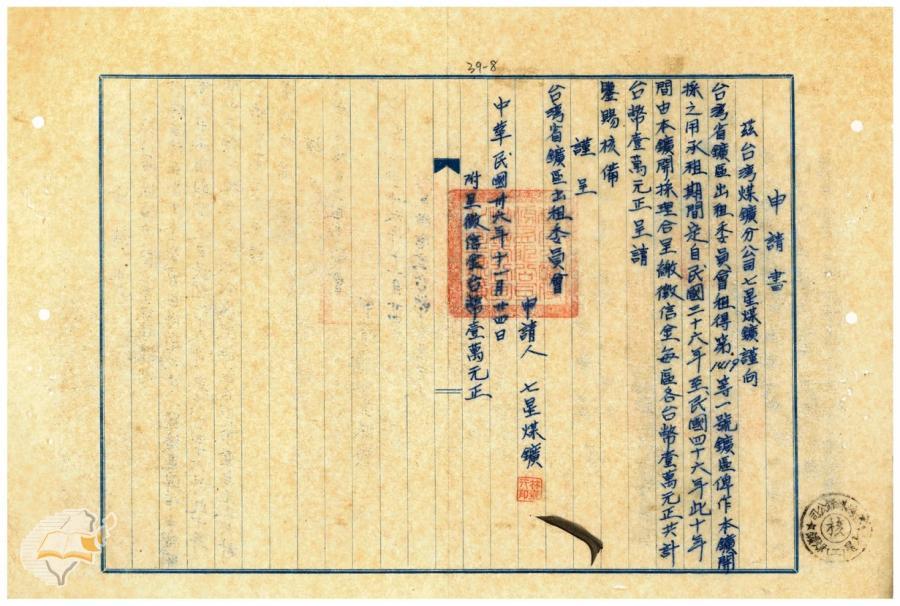 39-8
申請書
茲台灣煤鑛分公司七星煤鑛謹向
台灣省鑛區出租委員會租得第1419等一號鑛區俾作本鑛開
採之用承租期間定自民國三十六年至民國四十六年此十年
間由本鑛開採理合呈繳徵信金每區各台幣壹萬元正共計
台幣壹萬元正呈請
鑒賜核備
謹呈
台灣省鑛區出租委員會
申請人 七星煤鑛
中華民國卅六年十一月廿四日
附呈徵信金台幣壹萬元正
核